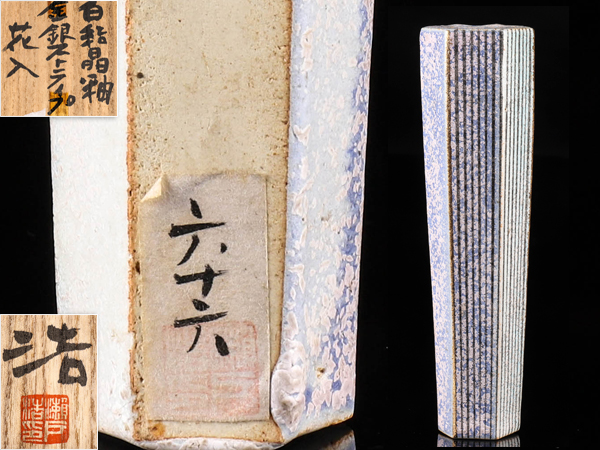 白結晶釉
金銀ストライプ
花入
六十六
浩
瀬戸
浩造